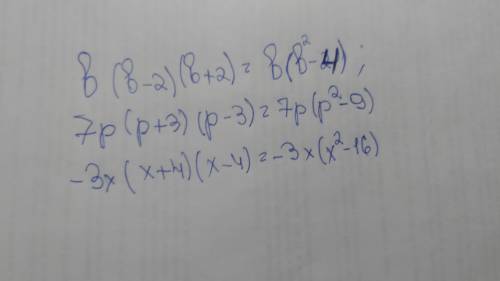 b(b-2)(b+2)=b(b²-4);
7p(p+3)(p-3)=7p(p²-9)
-3x(x+4)(x-4)=-3x(x²-16)